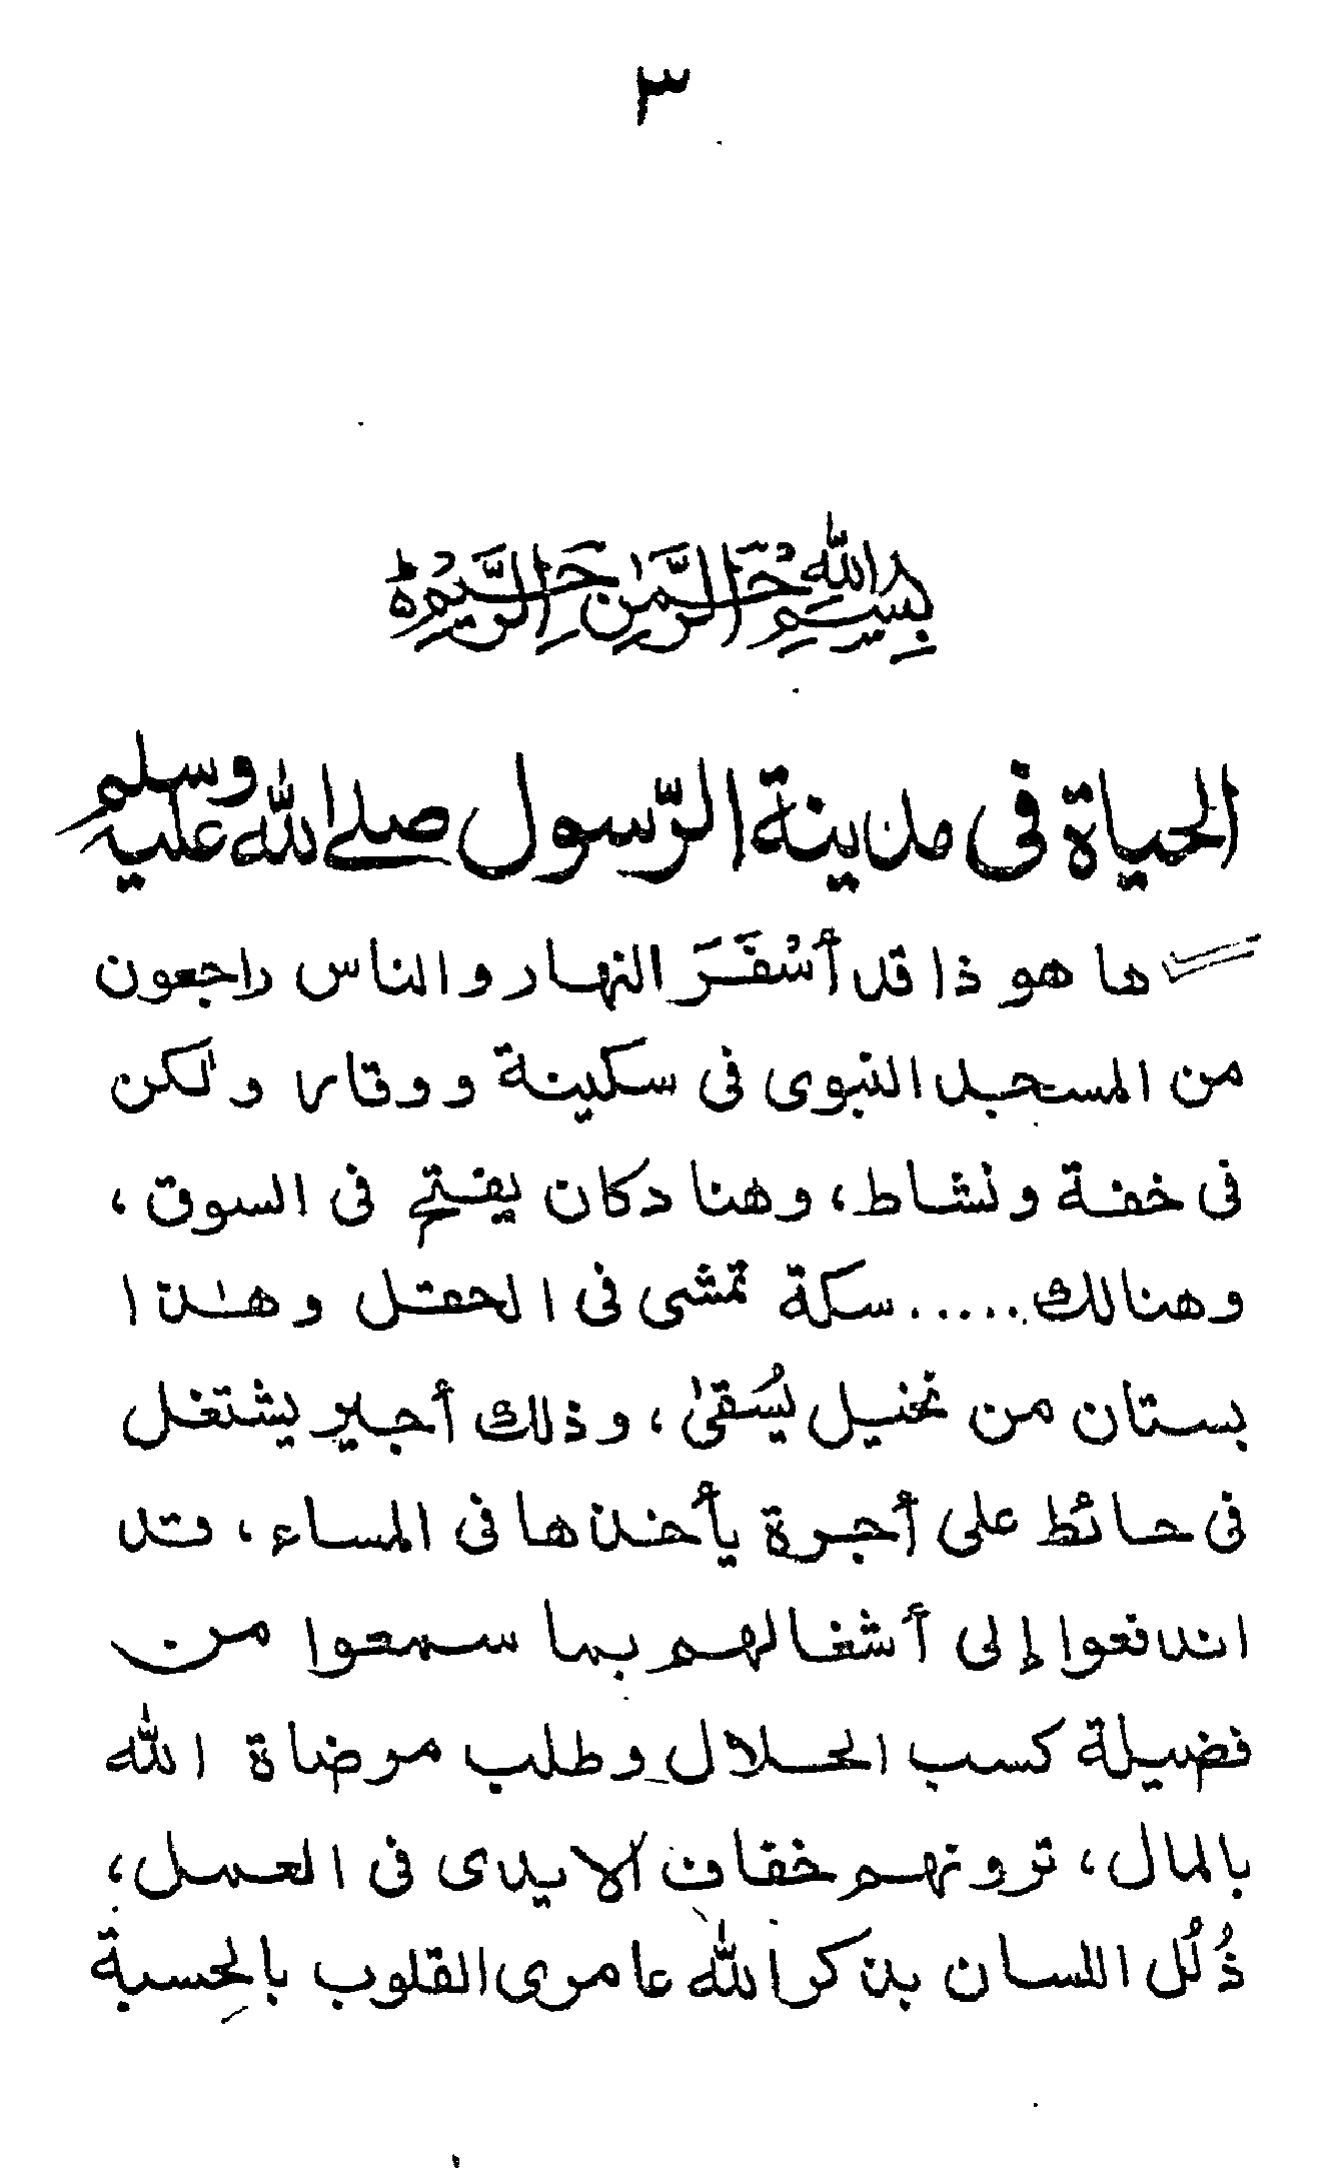 ٣
بسم الله الرحمن الرحيم
الحياة فى مدينة الرّسول صلى الله عليه وسلم
ها هو ذا قد أسْفَرَ النهار والناس راجعون
من المسجد النبوى فى سكينة ووقار ولكن
فى خفة ونشاط، وهنا دكان يفتح فى السوق،
وهنالك..... سكة تمشى فى الحقل وهذا
بستان من نخيل يُسقىٰ، وذلك أجير يشتغل
فى حائط على أجرة يأخذها فى المساء، قد
اندفعوا إلى أشغالهم بما سمعوا من
فضيلة كسب الحلال وطلب مرضاة الله
بالمال، ترونهم خفاف الايدى فى العمل،
ذُلُل اللسان بذكر الله عامرى القلوب بالحِسبة